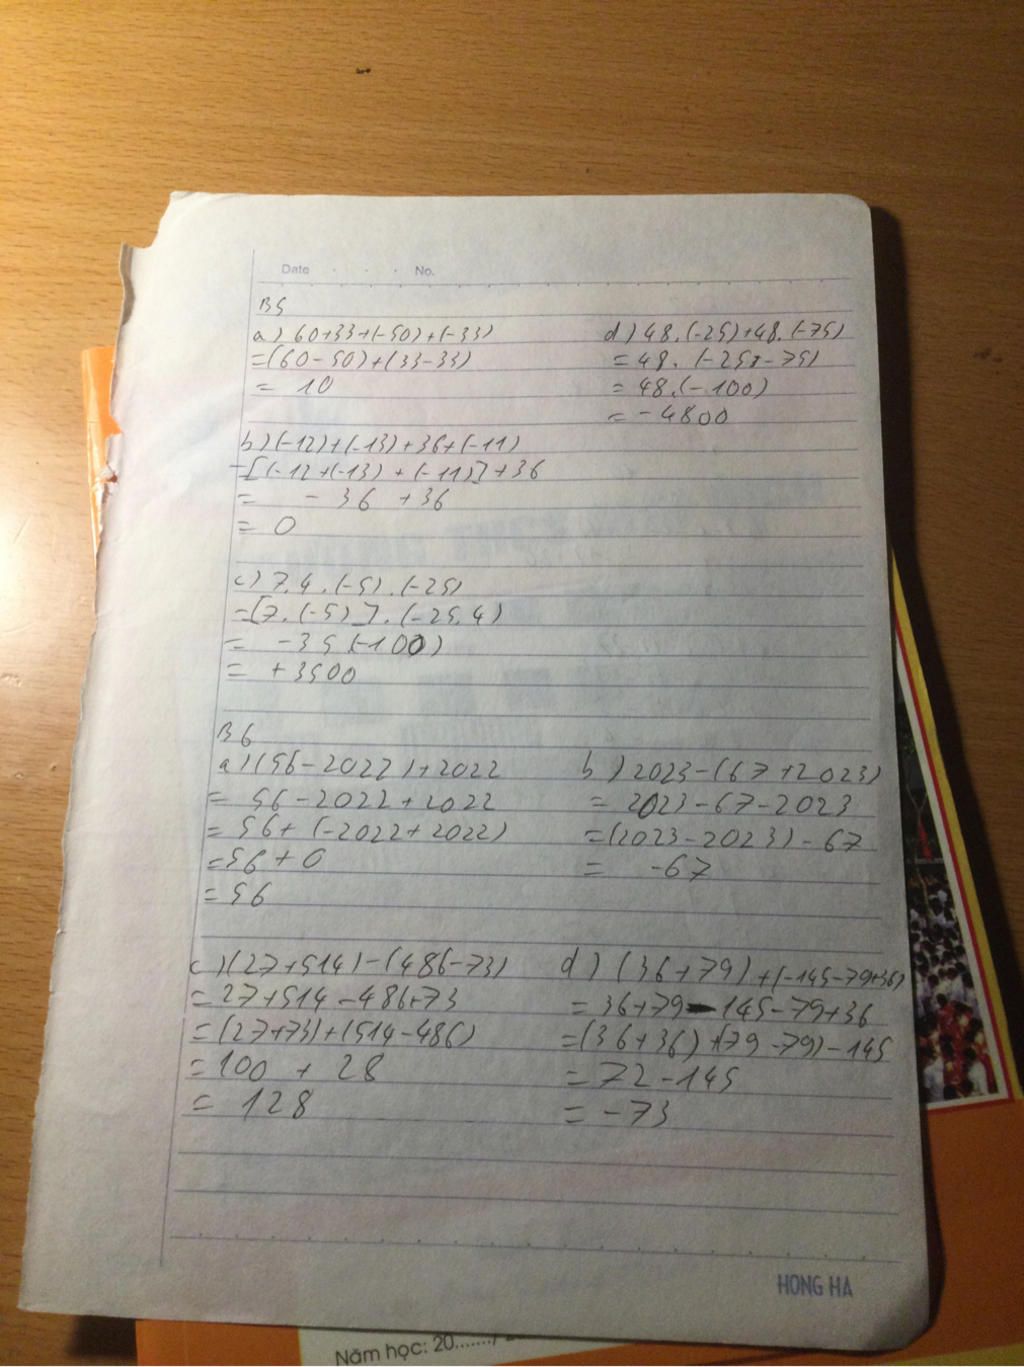 Date . . . No.
B5
a) 60+33+(-50)+(-33)
=(60-50)+(33-33)
= 10
d) 48.(-25)+48.(-75)
=48. (-25+-75)
= 48.(-100)
= -4800
b) (-12)+(-13)+36+(-11)
=[(-12+(-13)+(-11)]+36
= -36 +36
= 0
c) 7.4.(-5).(-25)
=[7.(-5)].(-25.4)
= -35(-100)
= +3500
B6
a) (56-2022)+2022
= 56-2022+2022
= 56+(-2022+2022)
=56+0
= 56
b) 2023-(67+2023)
= 2023-67-2023
=(2023-2023)-67
= -67
c) (27+514)-(486-73)
= 27+514-486+73
=(27+73)+(514-486)
=100 + 28
= 128
d) (36+79)+(-145-79+36)
= 36+79-145-79+36
=(36+36)+(79-79)-145
= 72-145
= -73
HONG HA
Năm học: 20......./